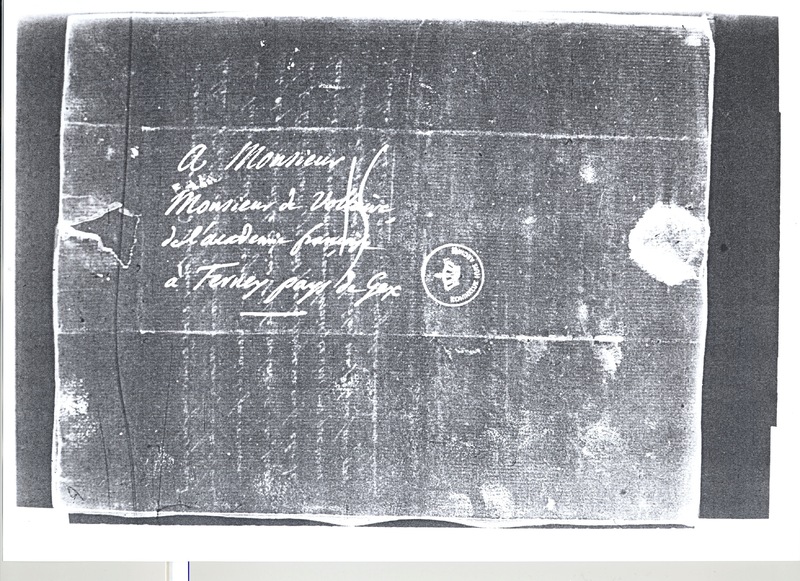 A Monsieur
Monsieur de Voltaire
de l'academie françoise
a Ferney, pays de Gex